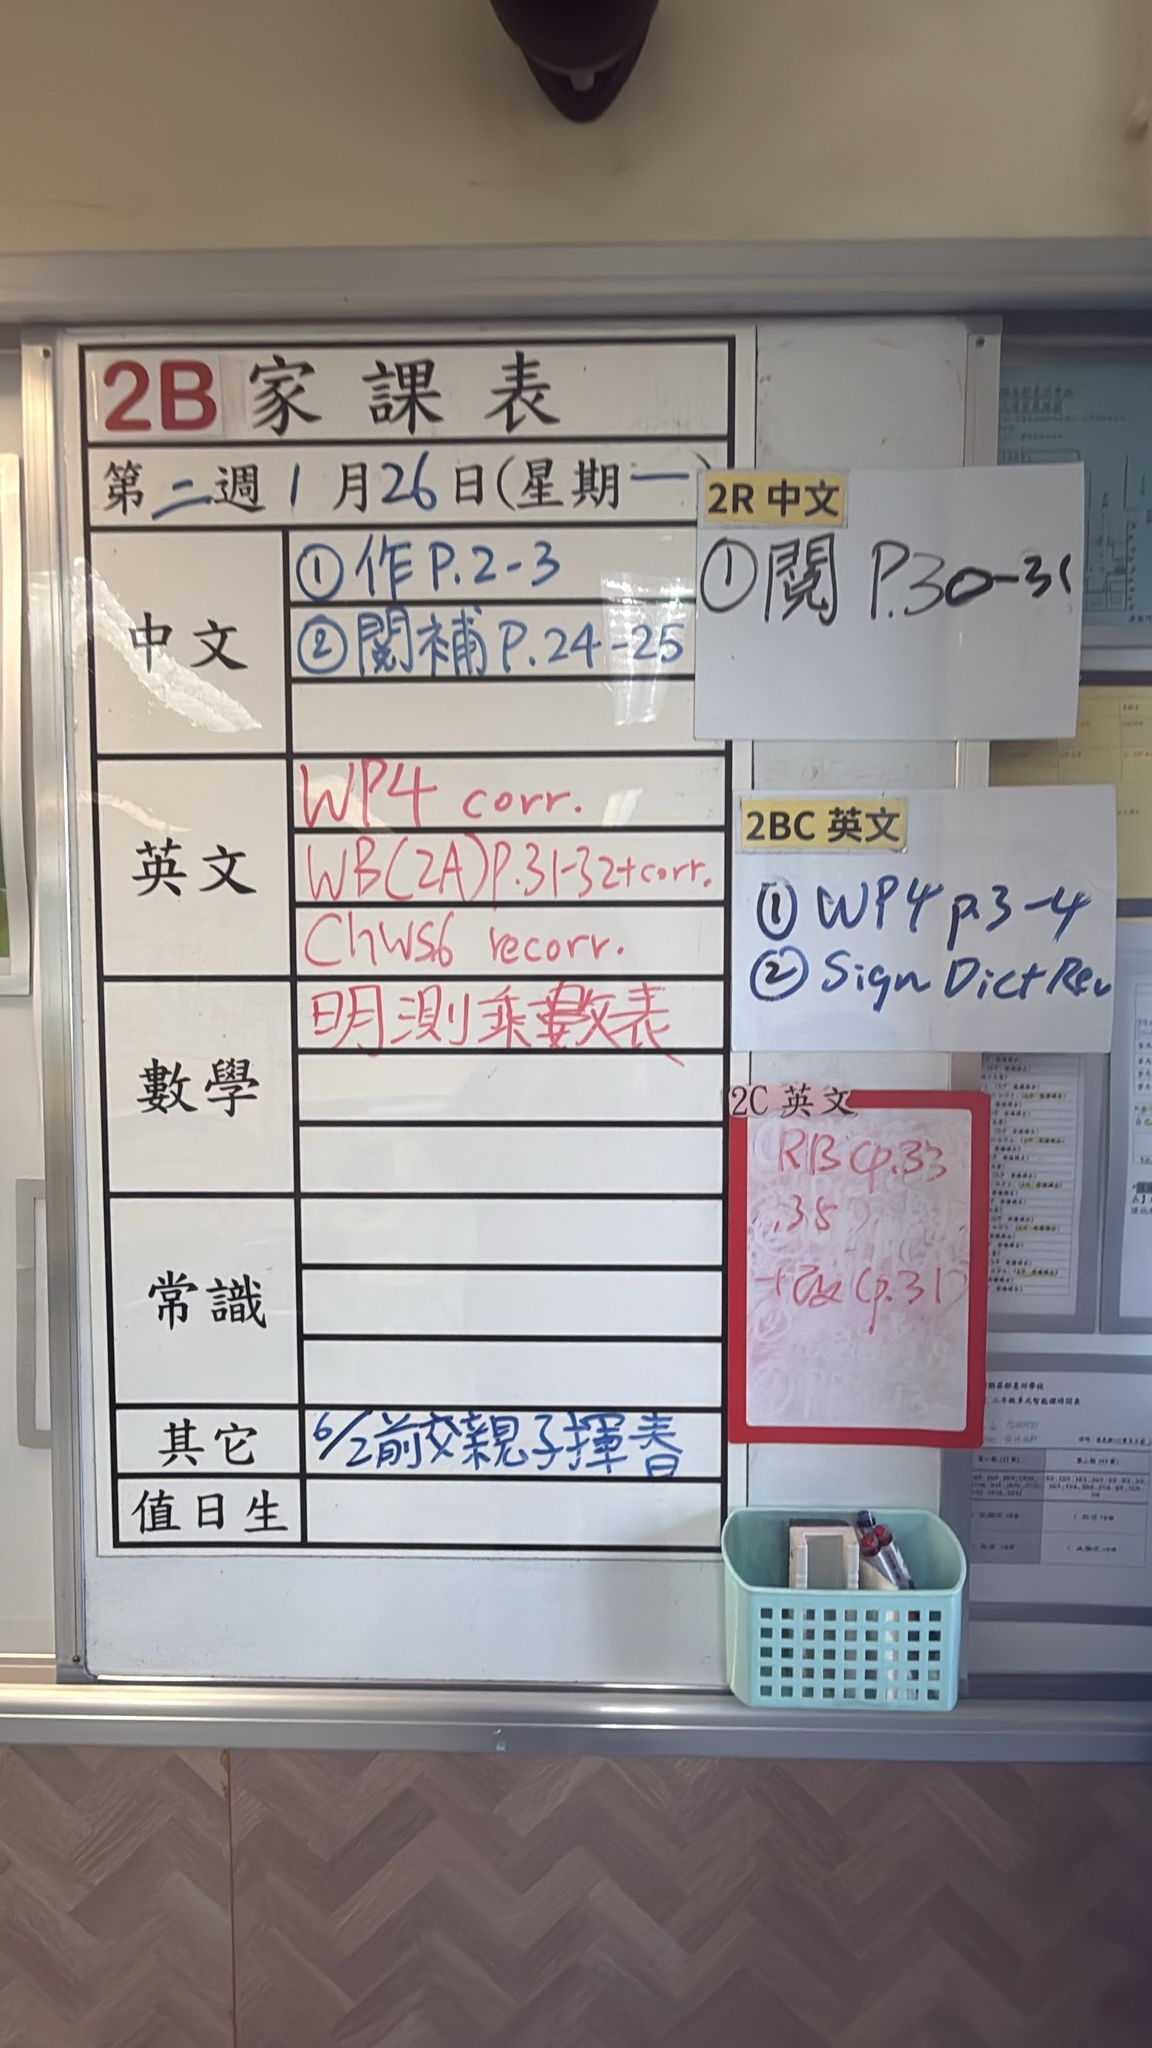 2B 家課表
第二週1月26日(星期一)
中文
①作P.2-3
②閱補P.24-25
英文
WP4 corr.
WB(2A)P.31-32+corr.
ChWS6 recorr.
數學
明測乘數表
常識
其它
6/2前交親子揮春
值日生
2R 中文
①閱 P.30-31
2BC 英文
① WP4 p.3-4
② Sign Dict Rev
2C 英文
RB (p.33
.35)
(p.31)